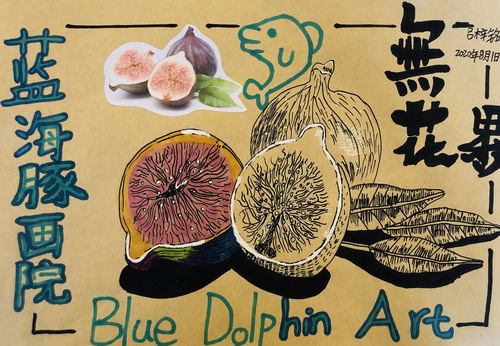 蓝海豚画院
無花果
2020年8月1日
Blue Dolphin Art